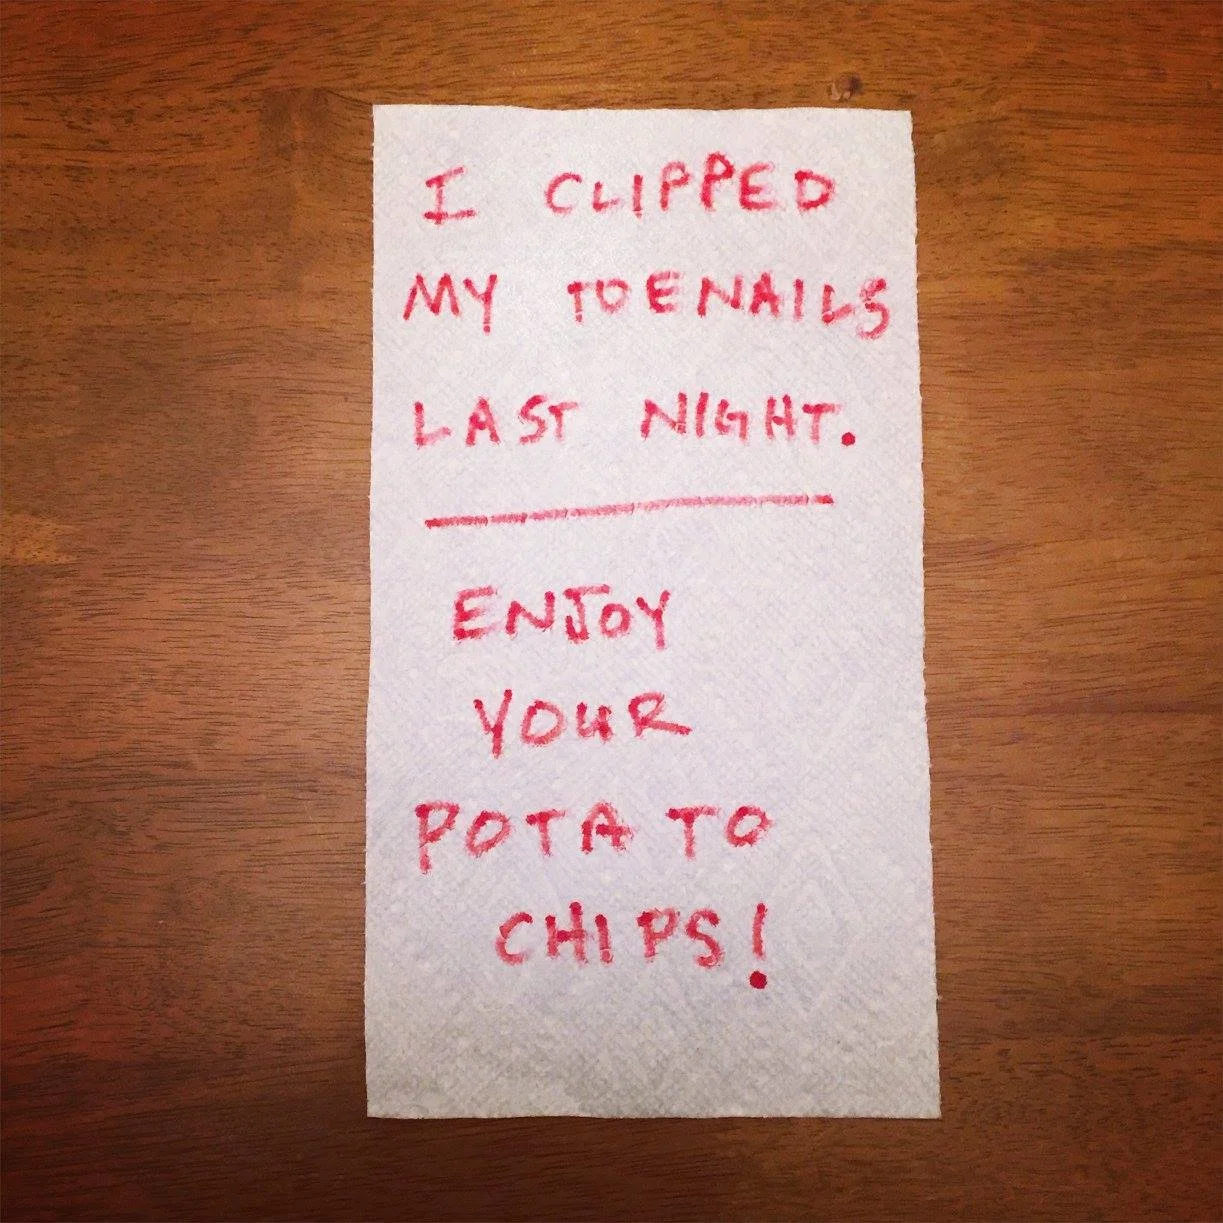 I CLIPPED
MY TOENAILS
LAST NIGHT.
ENJOY
YOUR
POTATO
CHIPS!